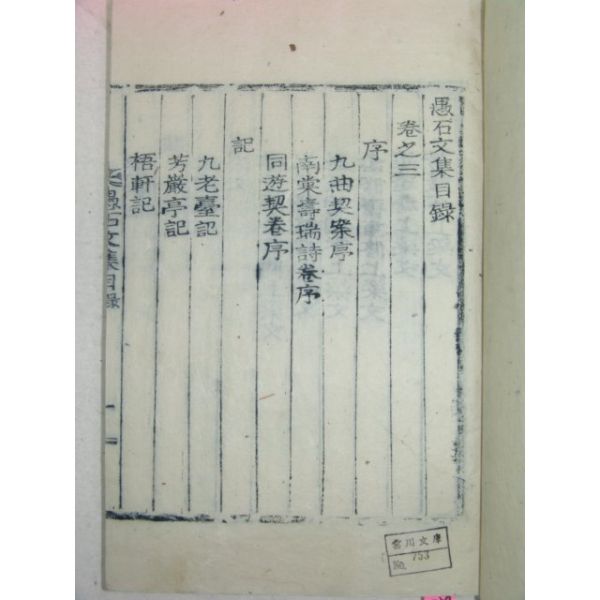 愚石文集目錄
卷之三
序
九曲契案序
南棠壽瑞詩卷序
同遊契卷序
記
九老臺記
芳巖亭記
梧軒記
愚石文集目錄
雲川文庫
No. 753